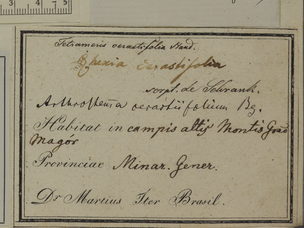 Tetrameris cerastifolia Naud.
Rhexia cerastifolia
script. de Schrank.
Arthrostemma cerastiifolium
Habitat in campis altis Montis Grao
Magór
Provinciae Minar. Gener.
Dr Martius Iter Brasil.